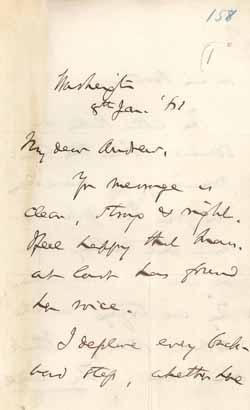 158
(1
Washington
8th Jan. '61
My dear Andrew,
Yr message is
clear, strong & right.
I feel happy that Mass.
at last has found
her voice.
I deplore every back-
ward step, whether